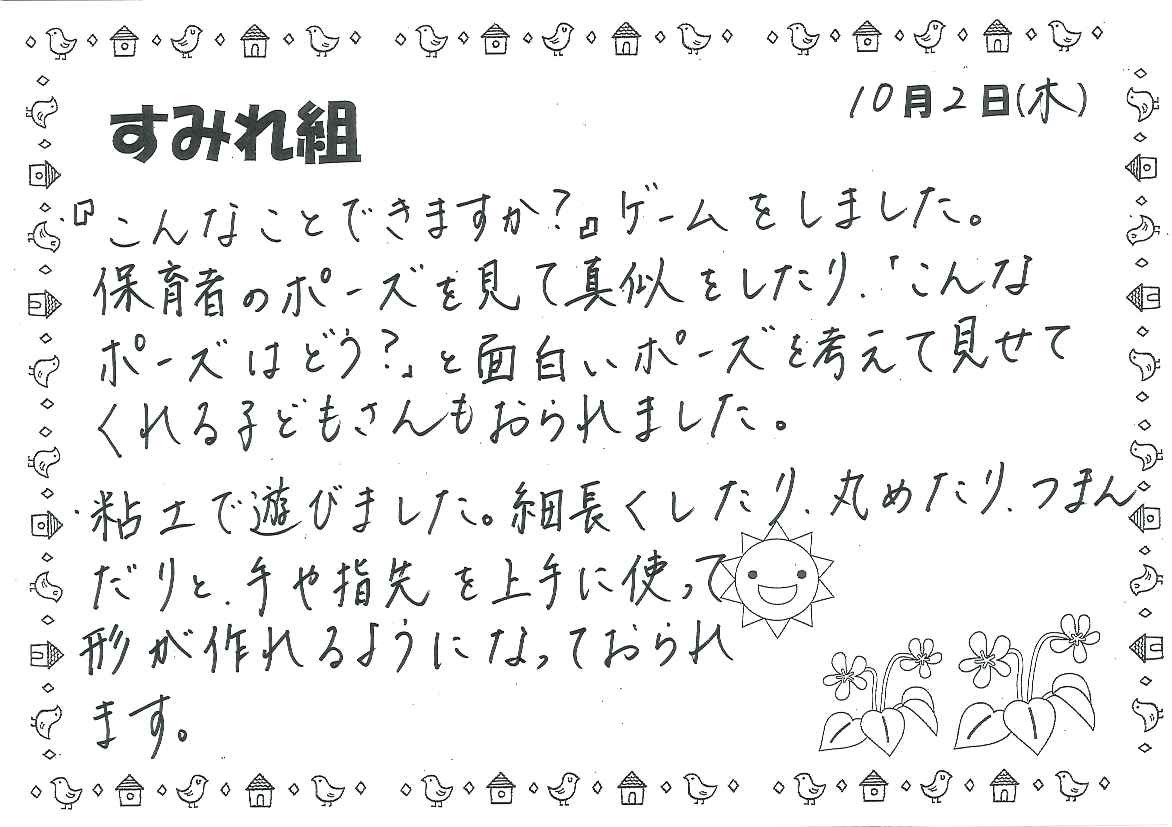 すみれ組
10月2日(木)
・『こんなことできますか?』ゲームをしました。
保育者のポーズを見て真似をしたり、「こんな
ポーズはどう?」と面白いポーズを考えて見せて
くれる子どもさんもおられました。
・粘土で遊びました。細長くしたり、丸めたり、つまん
だりと、手や指先を上手に使って
形が作れるようになっておられ
ます。